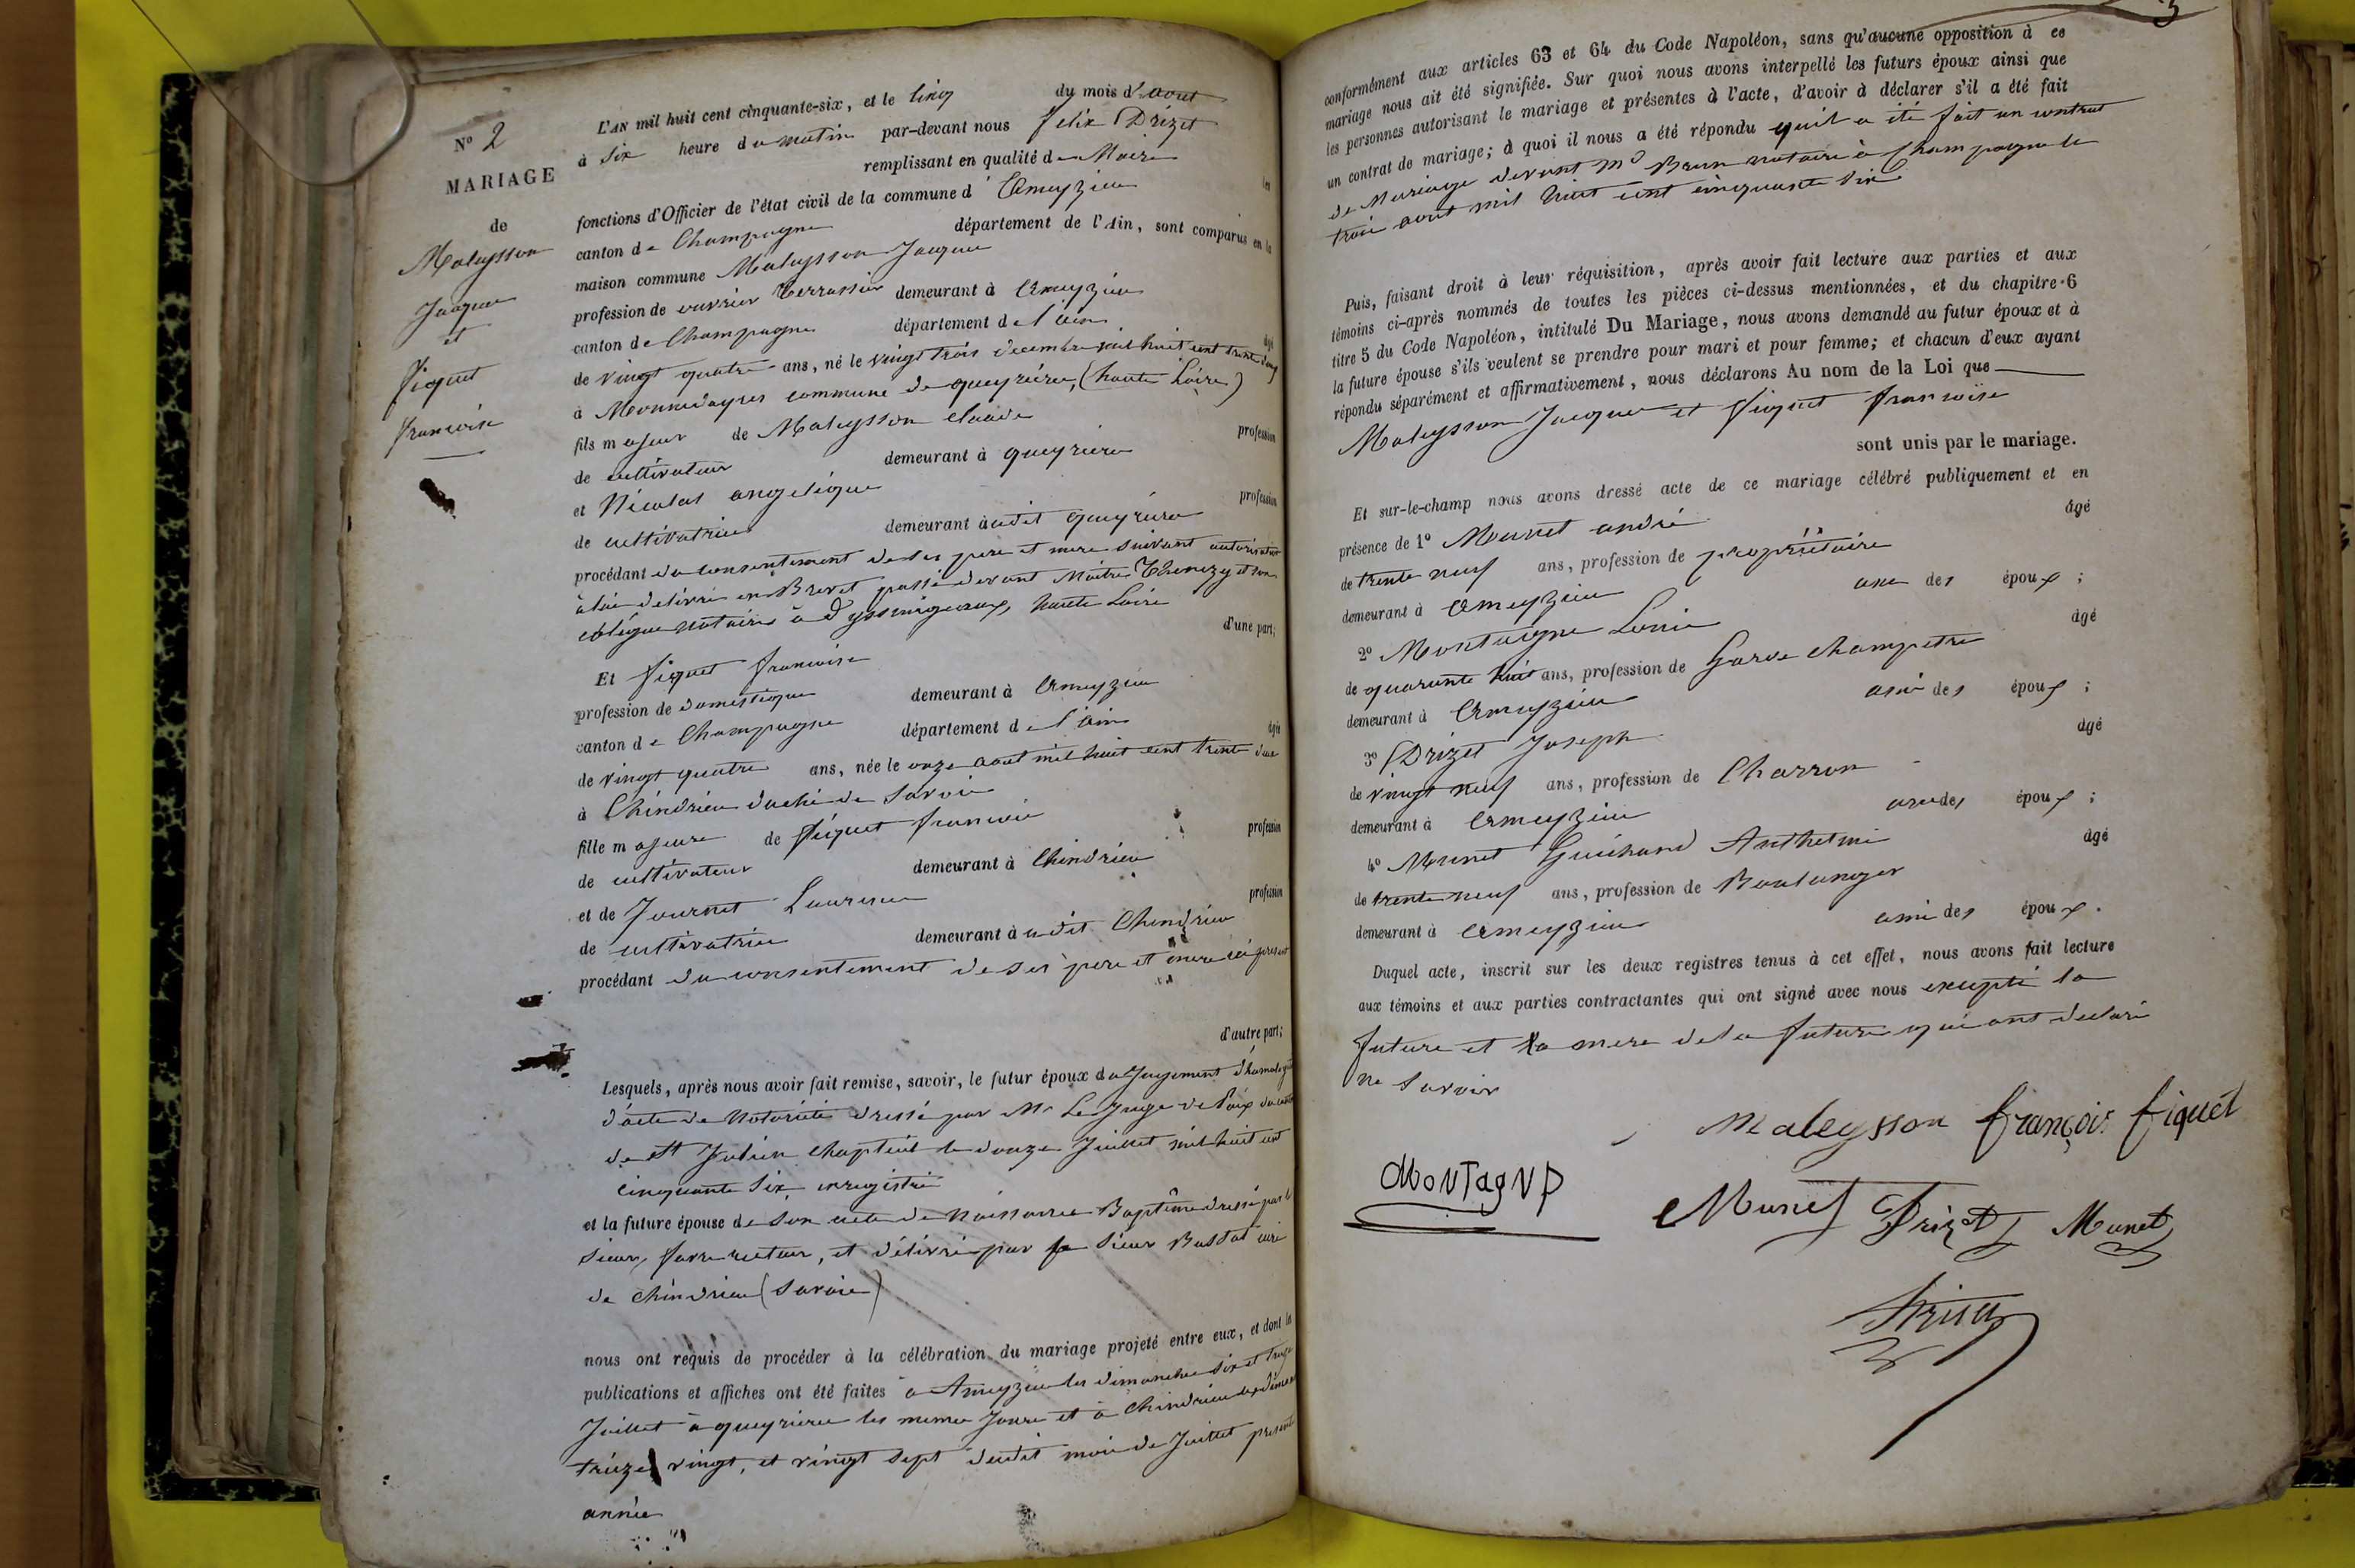 N° 2
MARIAGE
de
Maleysson
Jacque
et
Fiquet
francoise
L'AN mil huit cent cinquante-six, et le Cinq du mois d'aout
à six heure du matin par-devant nous felix Drizet
remplissant en qualité de Maire les
fonctions d'Officier de l'état civil de la commune d'Ameyzieu
canton de Champagne département de l'Ain, sont comparus en la
maison commune Maleysson Jacque
profession de ouvrier terrassier demeurant à Ameyzieu
canton de Champagne département de l'ain âgé
de vingt quatre ans, né le vingt trois decembre mil huit cent trente
à commune de queyrière, (haute Loire)
fils majeur de Maleysson claude profession
de cultivateur demeurant à queyriere
et Nicolas angelique profession
de cultivatrice demeurant à udit queyriere
procédant du consentement de ses pere et mere suivant autorisation
à lui delivré en Brevet passé devant Maitre et son
collègue notaires à Yssingeaux, haute Loire
d'une part;
Et fiquet francoise
profession de domestique demeurant à Ameyzieu
canton de Champagne département de l'ain âgée
de vingt quatre ans, née le onze aout mil huit cent trente deux
à Chindrieu duché de Savoie
fille majeure de fiquet francois profession
de cultivateur demeurant à Chindrieu
et de Journet Laurence profession
de cultivatrice demeurant à udit Chindrieu
procédant du consentement de ses pere et mere ici present
d'autre part;
Lesquels, après nous avoir fait remise, savoir, le futur époux du Jugement
d'acte de Notoriété dressé par Mr Le Juge de Paix du canton
de St Julien Chapteuil le douze Juillet mil huit cent
cinquante Six enregistré
et la future épouse de son acte de Naissance Baptême dressé par le
Sieur favre recteur, et délivré par le Sieur curé
de Chindrieu (Savoie)
nous ont requis de procéder à la célébration du mariage projeté entre eux, et dont les
publications et affiches ont été faites à Ameyzieu les dimanches six et treize
Juillet à queyriere les memes Jours et à Chindrieu les
treize vingt, et vingt sept dudit mois de Juillet presente
année
3
conformément aux articles 63 et 64 du Code Napoléon, sans qu'aucune opposition à ce
mariage nous ait été signifiée. Sur quoi nous avons interpellé les futurs époux ainsi que
les personnes autorisant le mariage et présentes à l'acte, d'avoir à déclarer s'il a été fait
un contrat de mariage; à quoi il nous a été répondu quil a été fait un contrat
de Mariage devant Me Brun notaire à Champagne le
trois aout mil huit cent cinquante six
Puis, faisant droit à leur réquisition, après avoir fait lecture aux parties et aux
témoins ci-après nommés de toutes les pièces ci-dessus mentionnées, et du chapitre 6
titre 5 du Code Napoléon, intitulé Du Mariage, nous avons demandé au futur époux et à
la future épouse s'ils veulent se prendre pour mari et pour femme; et chacun d'eux ayant
répondu séparément et affirmativement, nous déclarons Au nom de la Loi que
Maleysson Jacque et fiquet francoise
sont unis par le mariage.
Et sur-le-champ nous avons dressé acte de ce mariage célébré publiquement et en
présence de 1° Meunet andré âgé
de trente neuf ans, profession de propriétaire
demeurant à Ameyzieu ami des époux ;
2° Montagne Louis âgé
de quarante huit ans, profession de Garde champetre
demeurant à Ameyzieu ami des époux ;
3° Drizet Joseph âgé
de vingt neuf ans, profession de Charron
demeurant à Ameyzieu ami des époux ;
4° Munet Guichard Anthelme âgé
de trente neuf ans, profession de Boulanger
demeurant à Ameyzieu ami des époux .
Duquel acte, inscrit sur les deux registres tenus à cet effet, nous avons fait lecture
aux témoins et aux parties contractantes qui ont signé avec nous excepté la
future et la mere de la future qui ont declaré
ne Savoir
Maleysson françois fiquet
MoNTagNe
Munet Drizet Munet
Drizet